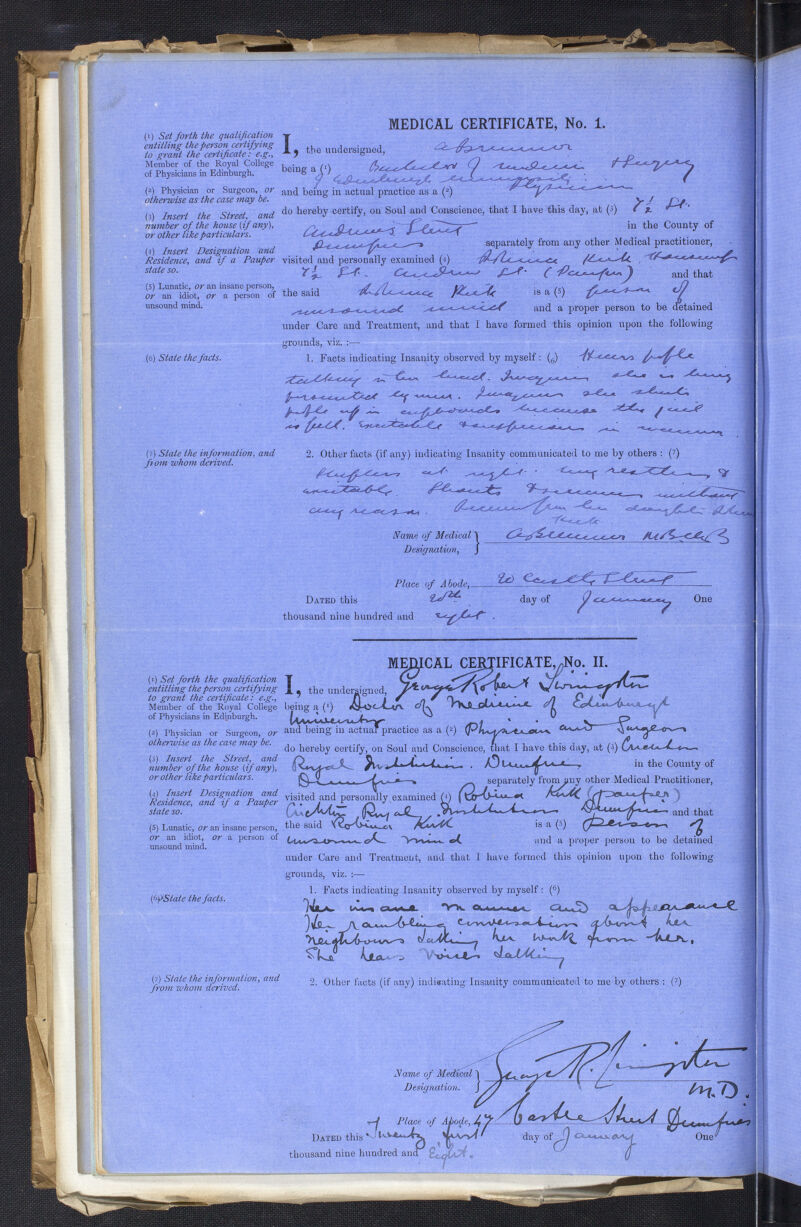 MEDICAL CERTIFICATE, No. 1.
(1) Set forth the qualification
entitling the person certifying
to grant the certificate: e.g.,
Member of the Royal College
of Physicians in Edinburgh.
(2) Physician or Surgeon, or
otherwise as the case may be.
(3) Insert the Street, and
number of the house (if any),
or other like particulars.
(4) Insert Designation and
Residence, and if a Pauper
state so.
(5) Lunatic, or an insane person,
or an idiot, or a person of
unsound mind.
I, the undersigned,
being a (1) Bachelor of medicine & Surgery
of Edinburgh University
and being in actual practice as a (2) Physician
do hereby certify, on Soul and Conscience, that I have this day, at (3) 7½ St.
Andrews Street in the County of
Dumfries separately from any other Medical practitioner,
visited and personally examined (4) Robina Kirk Housewife
7½ St. Andrew St. (Pauper) and that
the said Robina Kirk is a (5) person of
unsound mind and a proper person to be detained
under Care and Treatment, and that I have formed this opinion upon the following
grounds, viz. :—
(6) State the facts.
1. Facts indicating Insanity observed by myself: (6) Hears people
talking in her head. Imagines she is being
persecuted by men. Imagines she shuts
people up in cupboards because the jail
is full. Excitable & suspicious in manner.
(7) State the information, and
from whom derived.
2. Other facts (if any) indicating Insanity communicated to me by others : (7)
Sleepless at night. very restless &
excitable. Shouts & screams without
any reason. her daughter
Kirk
Name of Medical } M.B. Ch B
Designation,
Place of Abode, 20 Castle Street
DATED this 20th day of January One
thousand nine hundred and eight.
MEDICAL CERTIFICATE, No. II.
(1) Set forth the qualification
entitling the person certifying
to grant the certificate: e.g.,
Member of the Royal College
of Physicians in Edinburgh.
(2) Physician or Surgeon, or
otherwise as the case may be.
(3) Insert the Street, and
number of the house (if any),
or other like particulars.
(4) Insert Designation and
Residence, and if a Pauper
state so.
(5) Lunatic, or an insane person,
or an idiot, or a person of
unsound mind.
I, the undersigned, George Robert Livingston
being a (1) Doctor of Medicine of Edinburgh
University
and being in actual practice as a (2) Physician and Surgeon
do hereby certify, on Soul and Conscience, that I have this day, at (3) Crichton
Royal Institution. Dumfries in the County of
Dumfries separately from any other Medical Practitioner,
visited and personally examined (4) Robina Kirk (pauper)
Crichton Royal Institution Dumfries and that
the said Robina Kirk is a (5) person of
unsound mind and a proper person to be detained
under Care and Treatment, and that I have formed this opinion upon the following
grounds, viz. :—
(6) State the facts.
1. Facts indicating Insanity observed by myself: (6)
Her insane manner and appearance
Her rambling conversation about her
neighbours taking her work from her.
She hears voices talking
(7) State the information, and
from whom derived.
2. Other facts (if any) indicating Insanity communicated to me by others : (7)
Name of Medical } George R. Livingston
Designation. M.D.
Place of Abode, 47 Castle Street Dumfries
DATED this Twenty first day of January One
thousand nine hundred and Eight.